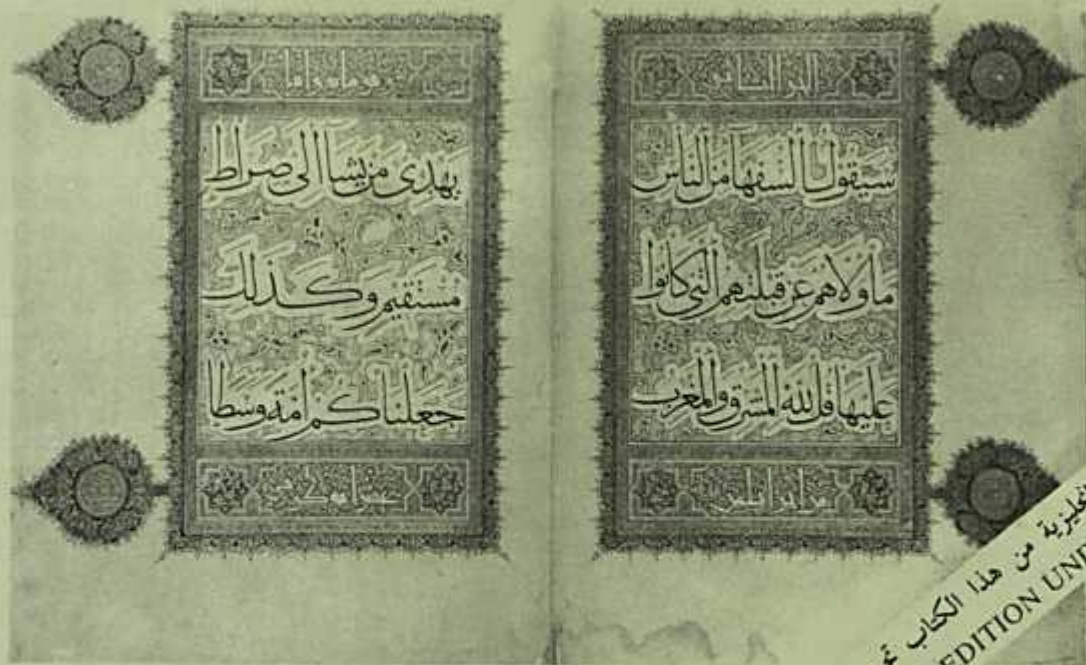 الجزو الثاني
سَيَقُولُ السُّفَهَآ مِنَ النَّاسِ
مَا وَلَّاهُمْ عَنْ قِبْلَتِهِمُ الَّتِي كَانُوا
عَلَيْهَا قُلْ لِلَّهِ الْمَشْرِقُ وَالْمَغْرِبُ
من اجزا ثلثين
يَهْدِى مَنْ يَشَآ اِلَى صِرَاطٍ
مُسْتَقِيمٍ وَكَذَلِكَ
جَعَلْنَاكُمْ اُمَّةً وَسَطًا
نجليزية من هذا الكتاب
EDITION UN